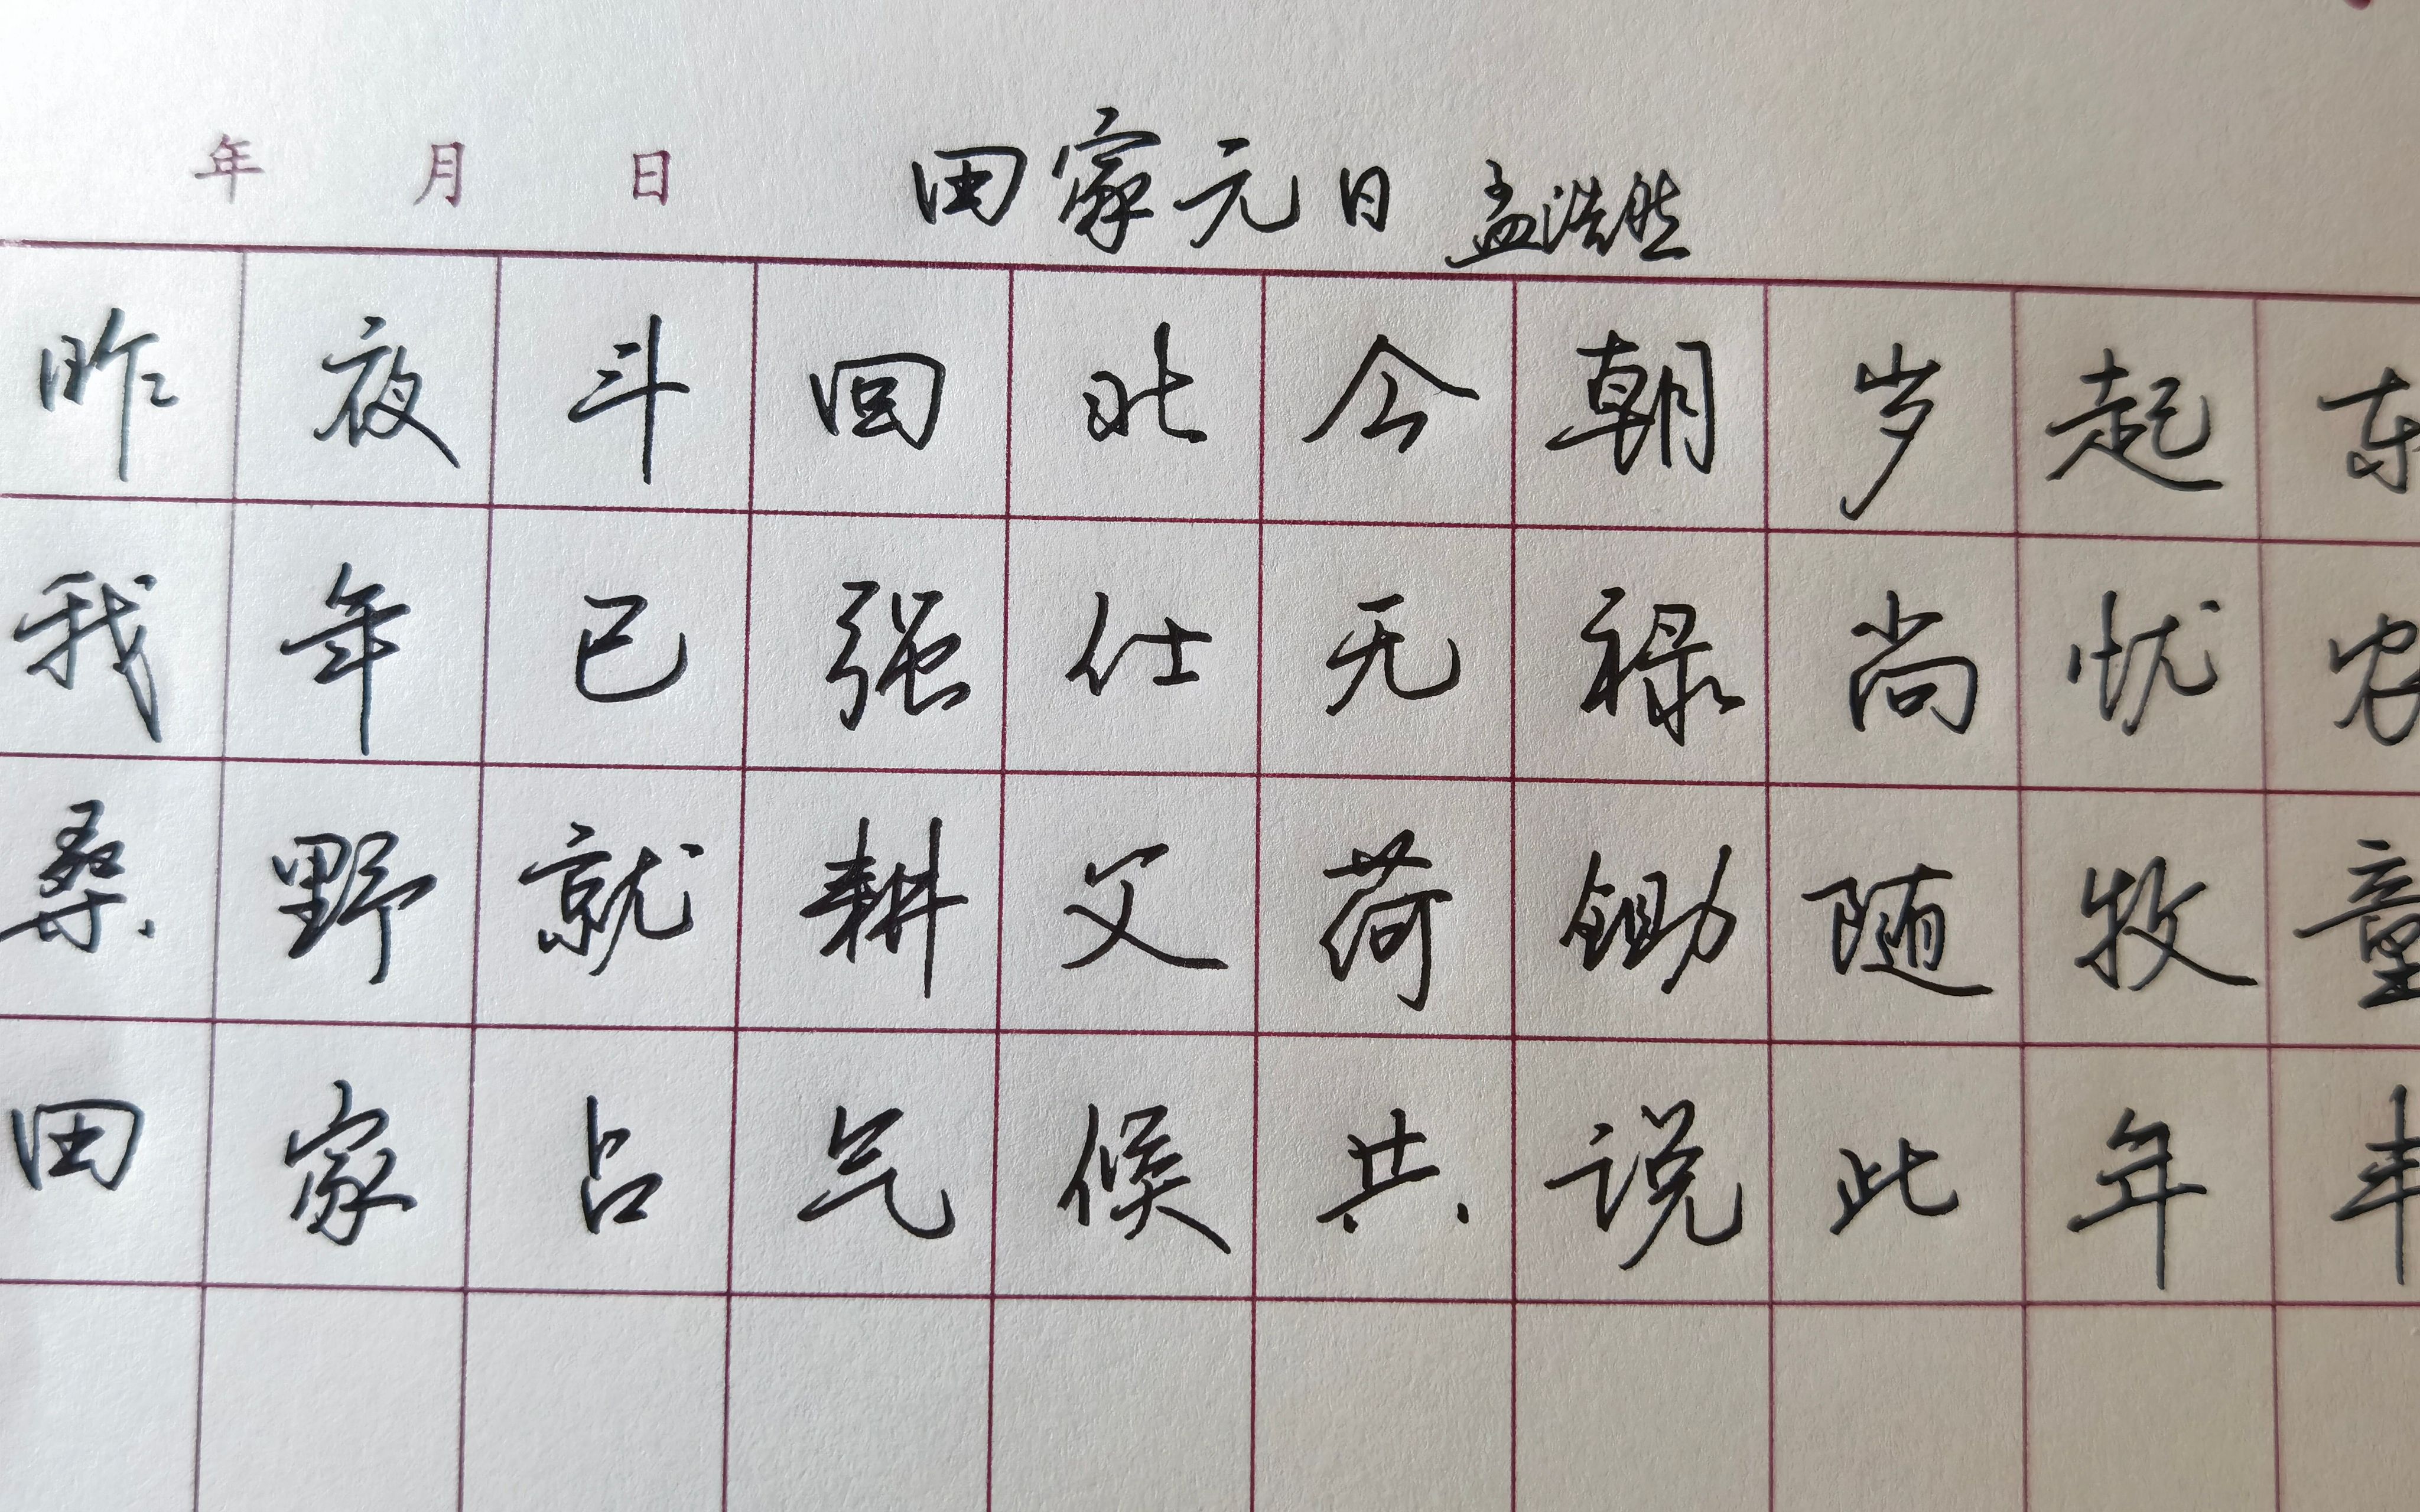 年 月 日 田家元日 孟浩然
昨夜斗回北今朝岁起东
我年已强仕无禄尚忧农
桑野就耕父荷锄随牧童
田家占气候共说此年丰